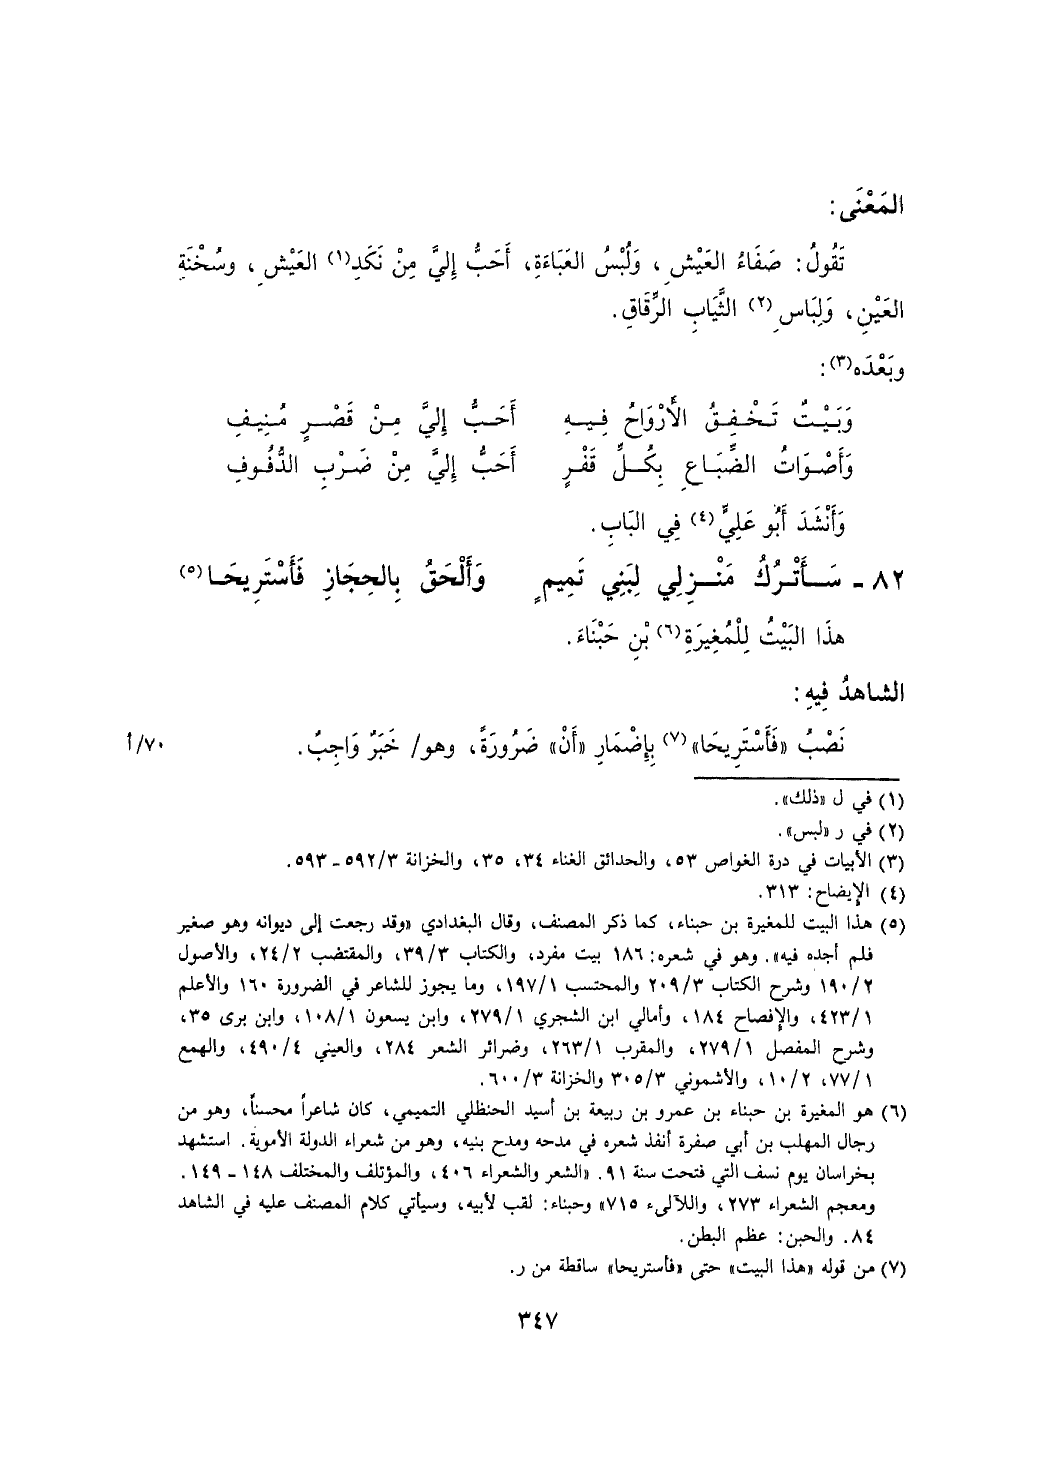 المَعْنَى:
تَقُولُ: صَفَاءُ العَيْشِ، وَلُبْسُ العَبَاءَةِ، أَحَبُّ إِليَّ مِنْ نَكَدِ(١) العَيْشِ، وسُخْنَةِ
العَيْنِ، وَلِبَاسِ(٢) الثَّيَابِ الرِّقَاقِ.
وبَعْدَه(٣):
وَبَيْتٌ تَخْفِقُ الأَرْوَاحُ فِيهِ أَحَبُّ إِليَّ مِنْ قَصْرٍ مُنِيفِ
وَأَصْوَاتُ الضِّبَاعِ بِكُلِّ قَفْرٍ أَحَبُّ إِليَّ مِنْ ضَرْبِ الدُّفُوفِ
وَأَنْشَدَ أَبُو عَلِيٍّ(٤) فِي البَابِ.
٨٢ - سَأَتْرُكُ مَنْزِلِي لِبَنِي تَمِيمٍ وَأَلْحَقُ بِالحِجَازِ فَأَسْتَرِيحَا(٥)
هذَا البَيْتُ لِلْمُغِيرَةِ(٦) بْنِ حَبْنَاءَ.
الشاهدُ فِيهِ:
نَصْبُ «فَأَسْتَرِيحَا»(٧) بِإِضْمَارِ «أَنْ» ضَرُورَةً، وهو/ خَبَرٌ وَاجِبٌ. ٧٠/أ
(١) في ل «ذلك».
(٢) في ر «لبس».
(٣) الأبيات في درة الغواص ٥٣، والحدائق الغناء ٣٤، ٣٥، والخزانة ٥٩٢/٣ - ٥٩٣.
(٤) الإيضاح: ٣١٣.
(٥) هذا البيت للمغيرة بن حبناء، كما ذكر المصنف، وقال البغدادي «وقد رجعت إلى ديوانه وهو صغير
فلم أجده فيه». وهو في شعره: ١٨٦ بيت مفرد، والكتاب ٣٩/٣، والمقتضب ٢٤/٢، والأصول
١٩٠/٢ وشرح الكتاب ٢٠٩/٣ والمحتسب ١٩٧/١، وما يجوز للشاعر في الضرورة ١٦٠ والأعلم
٤٢٣/١، والإفصاح ١٨٤، وأمالي ابن الشجري ٢٧٩/١، وابن يسعون ١٠٨/١، وابن برى ٣٥،
وشرح المفصل ٢٧٩/١، والمقرب ٢٦٣/١، وضرائر الشعر ٢٨٤، والعيني ٤٩٠/٤، والهمع
٧٧/١، ١٠/٢، والأشموني ٣٠٥/٣ والخزانة ٦٠٠/٣.
(٦) هو المغيرة بن حبناء بن عمرو بن ربيعة بن أسيد الحنظلي التميمي، كان شاعراً محسناً، وهو من
رجال المهلب بن أبي صفرة أنفذ شعره في مدحه ومدح بنيه، وهو من شعراء الدولة الأموية. استشهد
بخراسان يوم نسف التي فتحت سنة ٩١. «الشعر والشعراء ٤٠٦، والمؤتلف والمختلف ١٤٨ - ١٤٩.
ومعجم الشعراء ٢٧٣، واللآلىء ٧١٥» وحبناء: لقب لأبيه، وسيأتي كلام المصنف عليه في الشاهد
٨٤. والحبن: عظم البطن.
(٧) من قوله «هذا البيت» حتى «فأستريحا» ساقطة من ر.
٣٤٧